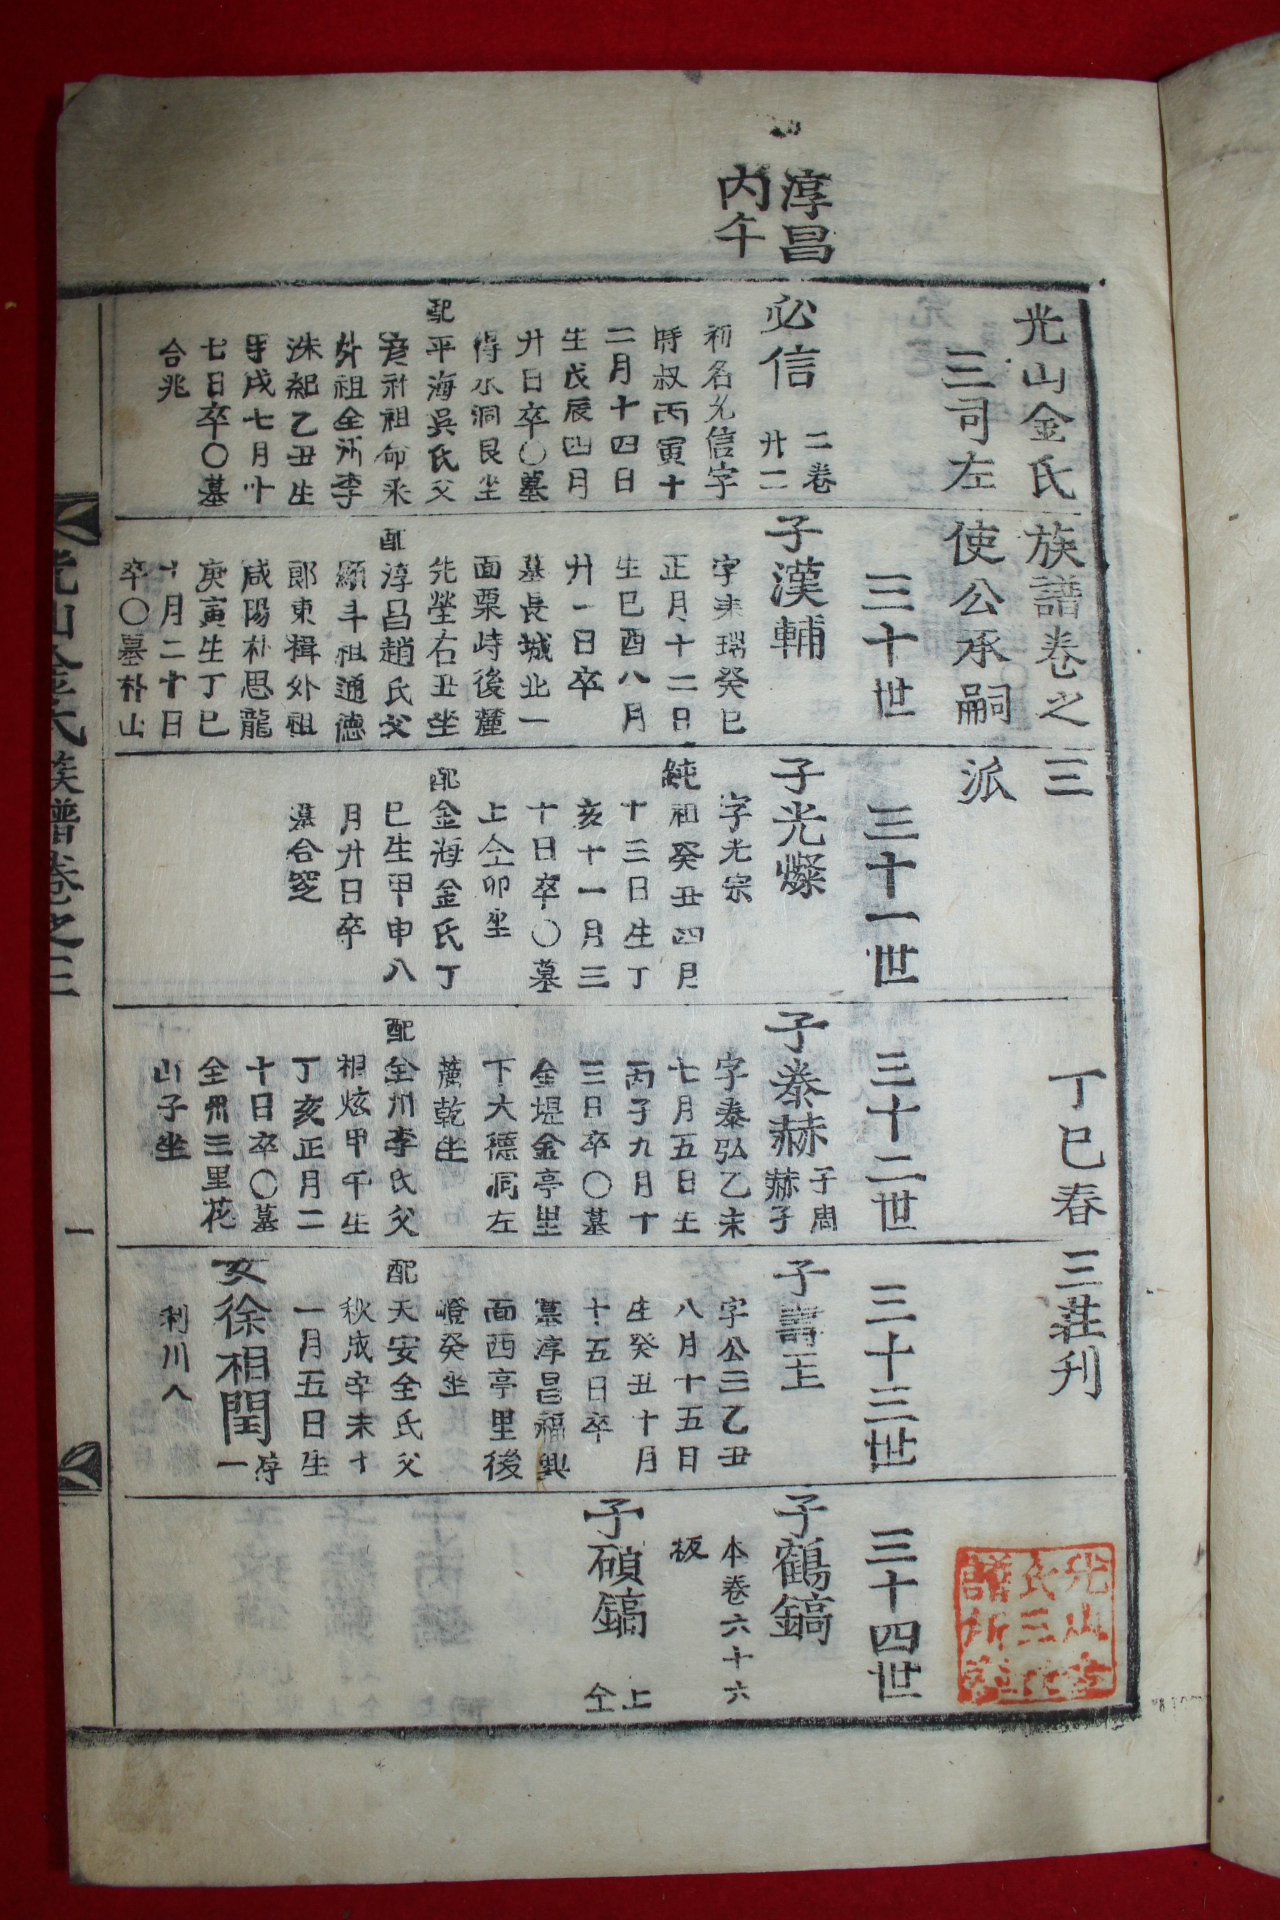 淳昌
丙午
光山金氏族譜卷之三 丁巳春三莊刊
三司左使公承嗣派
必信 二卷
廿二
初名光信字
時叔丙寅十
二月十四日
生戊辰四月
廿日卒〇墓
得水洞艮坐
配平海吳氏父
彦社祖命采
外祖全州李
洙紀乙丑生
甲戌七月十
七日卒〇墓
合兆
三十世
子漢輔
字夫瑞癸巳
正月十二日
生己酉八月
廿一日卒
墓長城北一
面栗峙後麓
先塋右丑坐
配淳昌趙氏父
顯斗祖通德
郞東楫外祖
咸陽朴思龍
庚寅生丁巳
十月二十日
卒〇墓朴山
三十一世
子光燦
字光宗
純祖癸丑四月
十三日生丁
亥十一月三
十日卒〇墓
上仝卯坐
配金海金氏丁
巳生甲申八
月廿日卒
墓合窆
三十二世
子泰赫 子周
赫子
字泰弘乙未
七月五日生
丙子九月十
三日卒〇墓
金堤金亭里
下大德洞左
麓乾坐
配全州李氏父
相炫甲午生
丁亥正月二
十日卒〇墓
全州三里花
山子坐
三十三世
子壽王
字公三乙丑
八月十五日
生癸丑十月
十五日卒
墓淳昌福興
面西亭里後
嶝癸坐
配天安全氏父
秋成辛未十
一月五日生
女徐相閏 存
一
利川人
三十四世
子鶴鎬
本卷六十六
板
子碩鎬 上
仝
光山金氏族譜卷之三 一